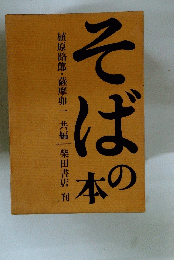 そばの本
植原路郎・薩摩卯一 共編
柴田書店 刊